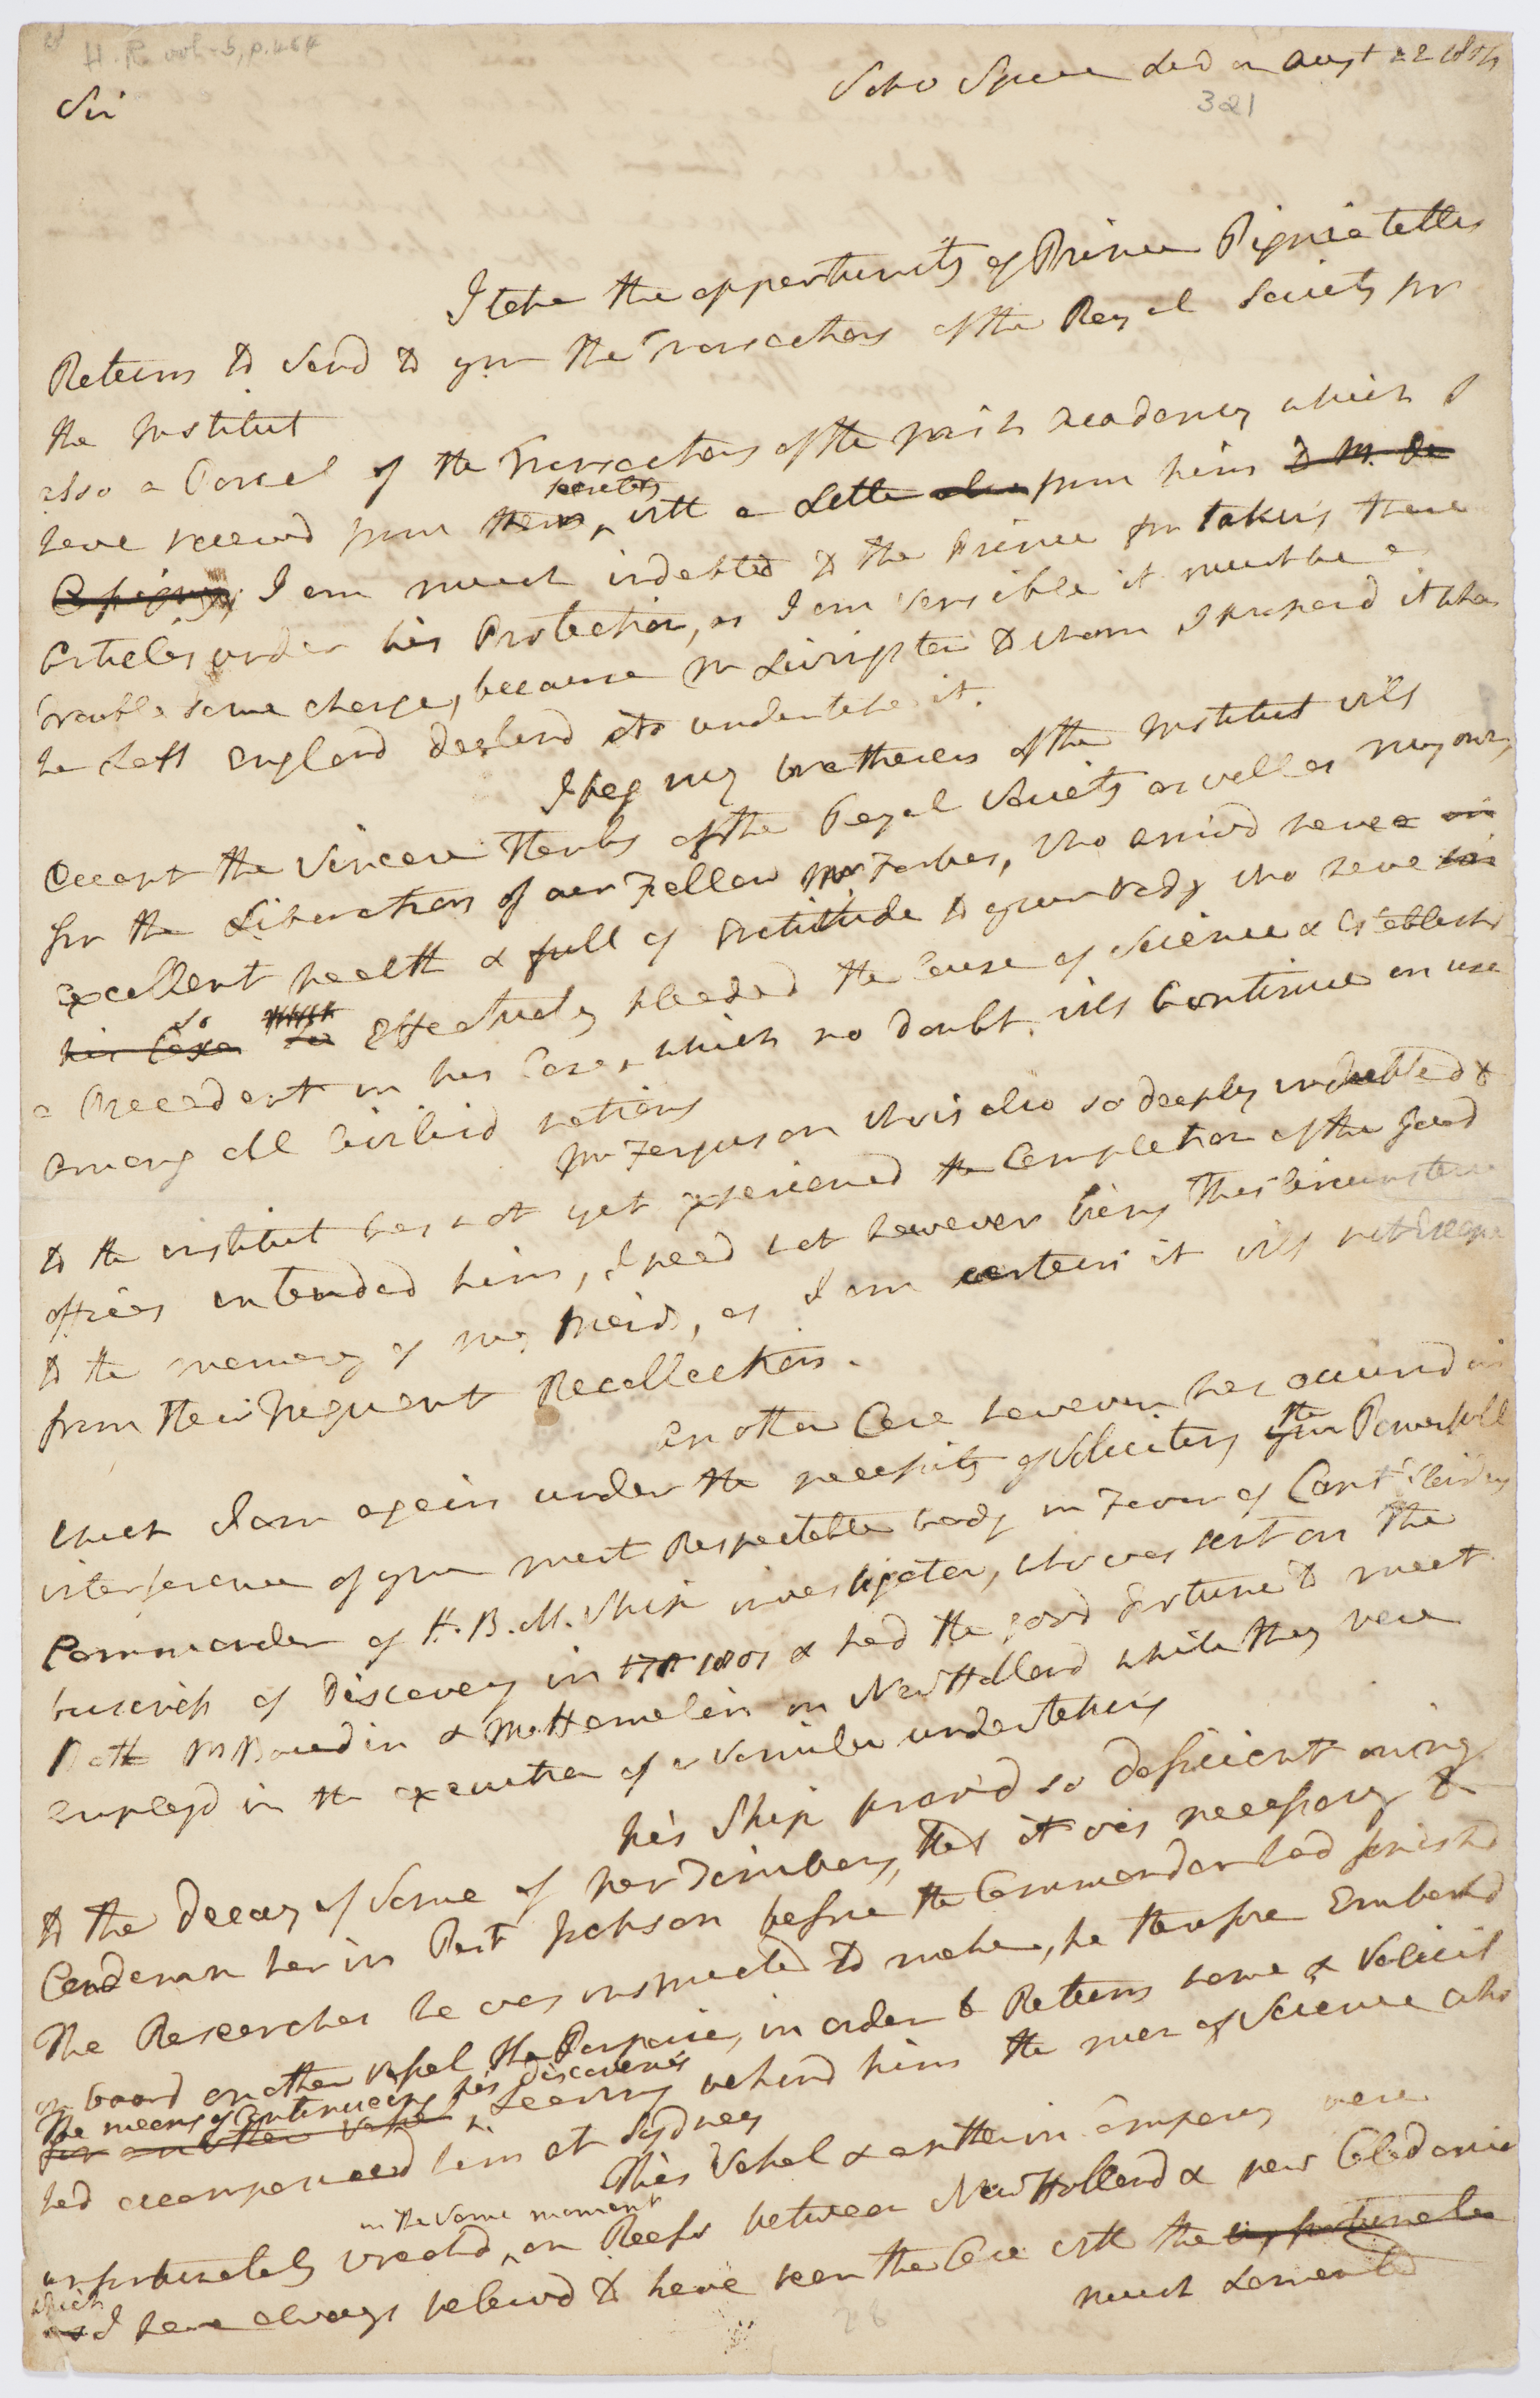 H. R. vol. 5, p. 464
Soho Square Lond on Augst 22 1804
321
Sir
I take the opportunity of Prince Pignatellis
Return to Send to you the Transactions of the Royal Society for
the Institut
also a Parcel of the Transactions of the Irish Academy which I
have receivd from their secretary, with a Letter also from him to M. De
I am much indebted to the Prince for taking these
articles under his Protection, as I am sensible it must be a
trouble some charge, because Mr Livingston to whom I proposd it when
he Left England declind to undertake it.
I beg my bretheren of the Institut will
accept the Sincere Thanks of the Royal Society as well as my own,
for the Liberation of our Fellow Mr Forbes, who arrivd here in
excellent health & full of Gratitude to your body who have in
his Case so effectualy pleaded the Cause of Science & Establishd
a Precedent in his Case, which no doubt will Continue in use
among all Civilisd nations
Mr Ferguson who is also so deeply indebted
to the institut has not yet experiencd the Completion of the good
offices intended him, I need not however bring this Circumstance
to the memory of my Freinds, as I am certain it will not escape
from their frequent Recollection.
another Case however has occurrd in
which I am again under the necessity of Soliciting your the Powerfull
interference of your most Respectable body in Favor of Capt Flinders
Commander of H. B. M. Ship investigator, who was sent on the
business of Discovery in 1801 & had the good Fortune to meet
Both M Baudin & M Hamelin on New Holland while they were
employd in the execution of a Similar undertaking
his Ship provd so deficient owing
to the Decay of Some of her Timbers, that it was necessary to
Condemn her in Port Jackson before the Commander had finishd
The Researches he was instructed to make, he therefore Embarkd
on board another vessel the Porpoise, in order to Return home & Solicit
The means of Continueing his discoveries
for another Vessel, Leaving behind him the men of Science who
had accompanied him at Sydney
This Vessel & another in Company were
in the same moment
unfortunately wreckd, on Reefs between New Holland & new Caledonia
which
and I have always beleivd to have been the Case with the unfortunate
much Lamented
28